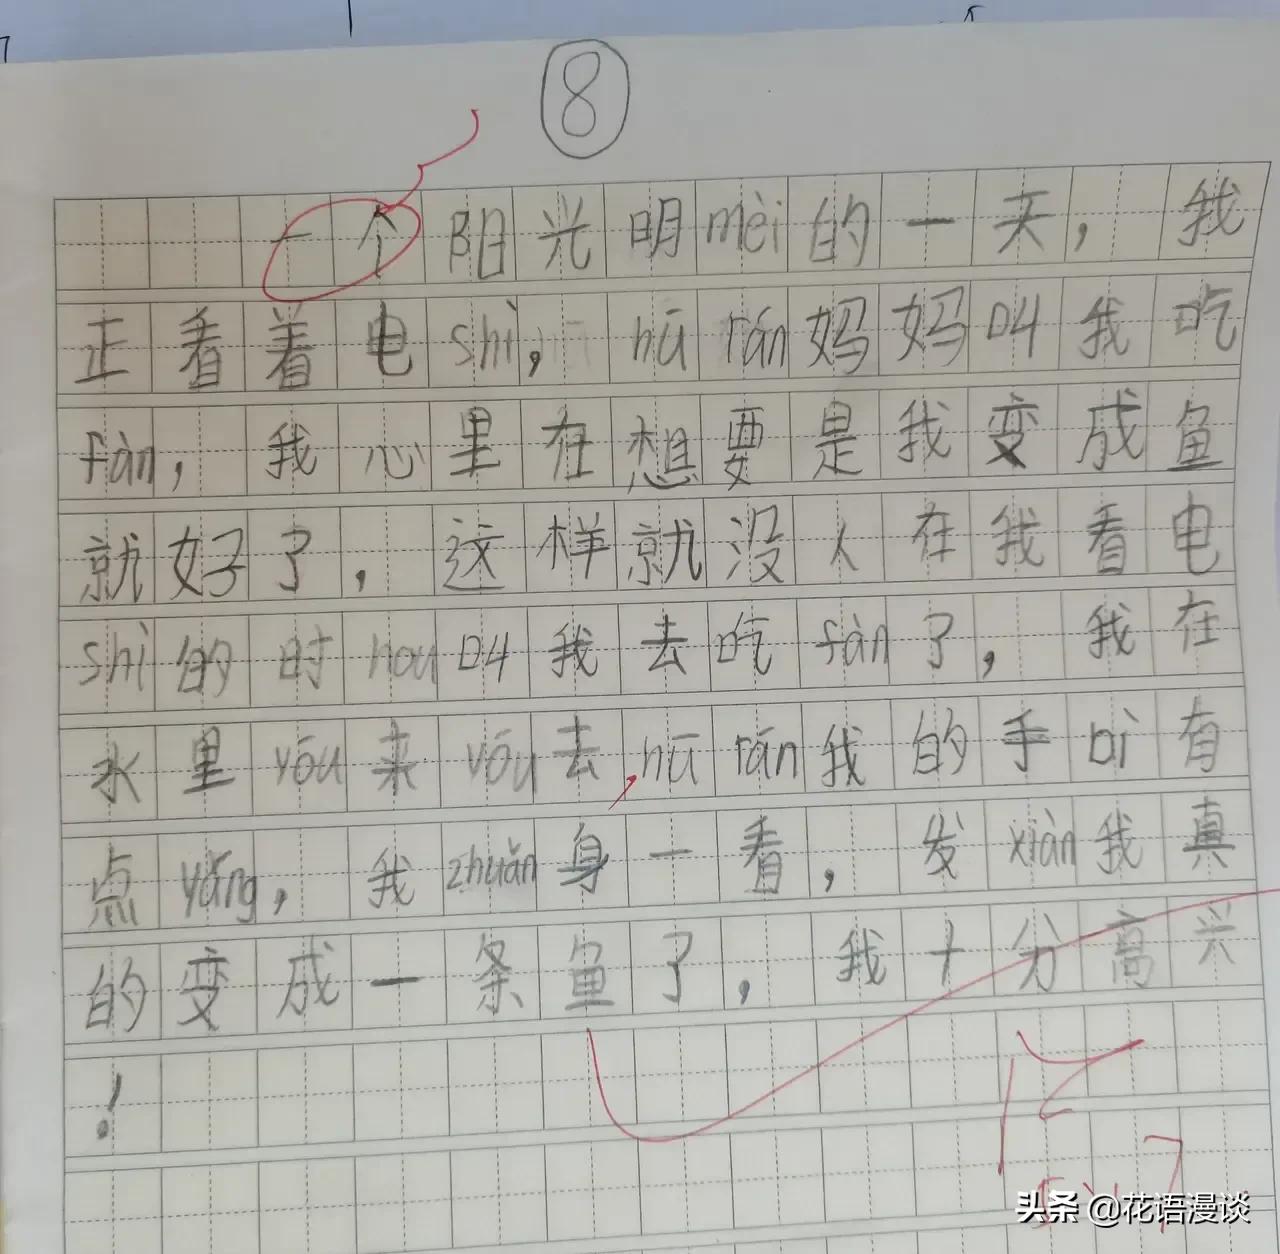 8
一个阳光明mèi的一天，我
正看着电shì，hū rán妈妈叫我吃
fàn，我心里在想要是我变成鱼
就好了，这样就没人在我看电
shì的时hou叫我去吃fàn了，我在
水里yōu来yōu去，hū rán我的手bì有
点yǎng，我zhuǎn身一看，发xiàn我真
的变成一条鱼了，我十分高兴
！
头条 @花语漫谈